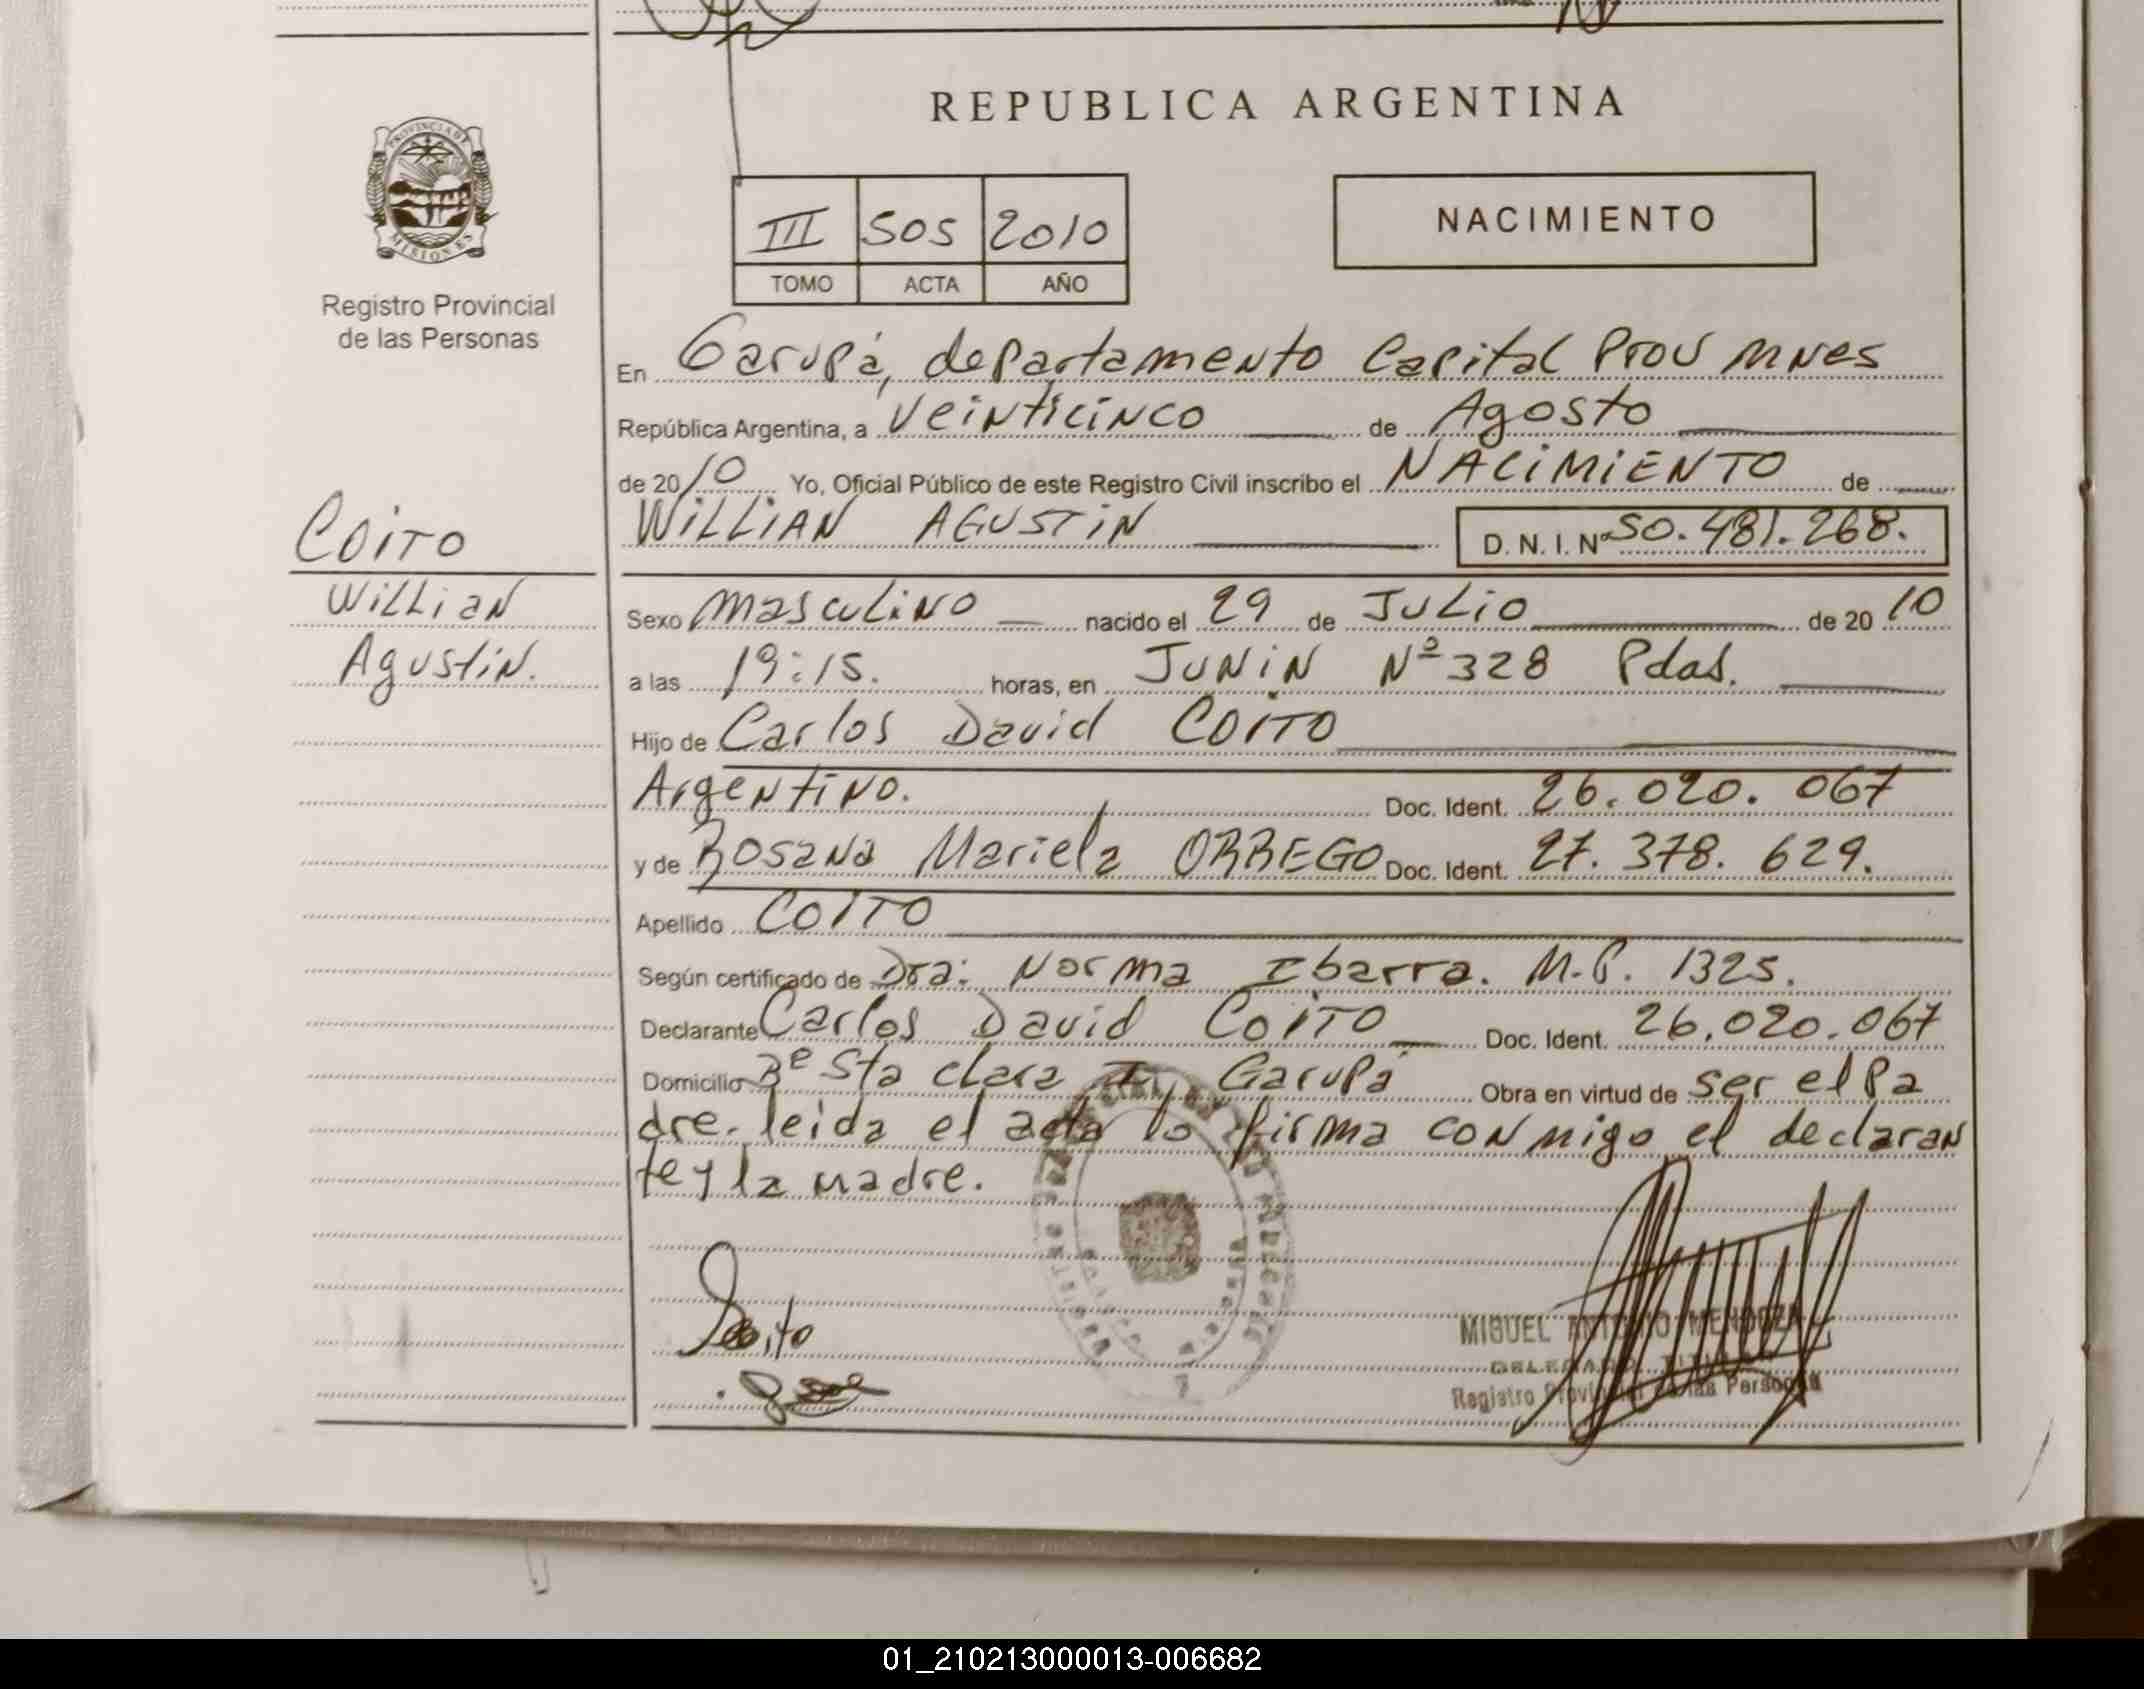 REPUBLICA ARGENTINA
PROVINCIA DE
MISIONES
Registro Provincial
de las Personas
III 505 2010
TOMO ACTA AÑO
NACIMIENTO
En Garupá, departamento Capital Prov Mnes
República Argentina, a veinticinco de Agosto
de 2010 Yo, Oficial Público de este Registro Civil inscribo el NACIMIENTO de
WILLIAN AGUSTIN D. N. I. Nº 50.481.268.
COITO
Willian
Agustin.
Sexo masculino nacido el 29 de Julio de 2010
a las 19:15. horas, en JUNIN Nº 328 Pdas.
Hijo de Carlos David COITO
Argentino. Doc. Ident. 26.020.067
y de Rosana Mariela ORREGO Doc. Ident. 27.378.629.
Apellido COITO
Según certificado de Dra: Norma Ibarra. M.P. 1325.
Declarante Carlos David COITO Doc. Ident. 26.020.067
Domicilio Bº Sta clara I, Garupá Obra en virtud de ser el Pa
dre. leida el acta lo firma conmigo el declaran
te y la madre.
Coito
MIGUEL ANTONIO MENDOZA
DELEGADO TITULAR
Registro Provincial de las Personas
01_210213000013-006682